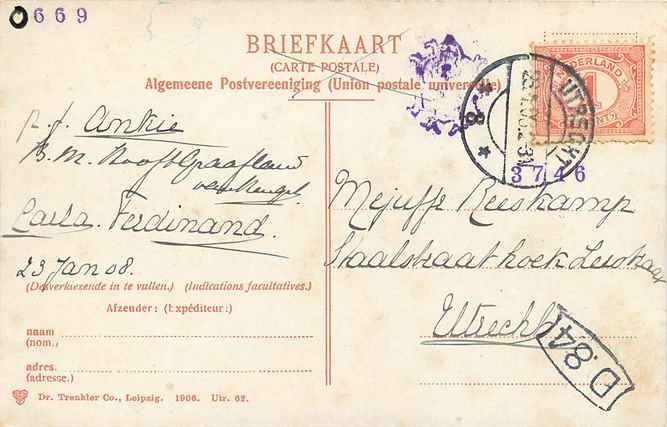 0669
BRIEFKAART
(CARTE POSTALE)
Algemeene Postvereeniging (Union postale universelle)
NEDERLAND
1
CENT
UTRECHT
* 8 *
3746
p. f. Ankie
B. M. Hooft Graafland
Carla. Ferdinand.
23 Jan 08.
(Door verkiezende in te vullen.) (Indications facultatives.)
Afzender: (Expéditeur:)
naam
(nom.)
adres.
(adresse.)
Mejuffr Reeskamp
Staalstraat hoek Leistraat
Utrecht
D.84
Dr. Trenkler Co., Leipzig. 1906. Utr. 62.